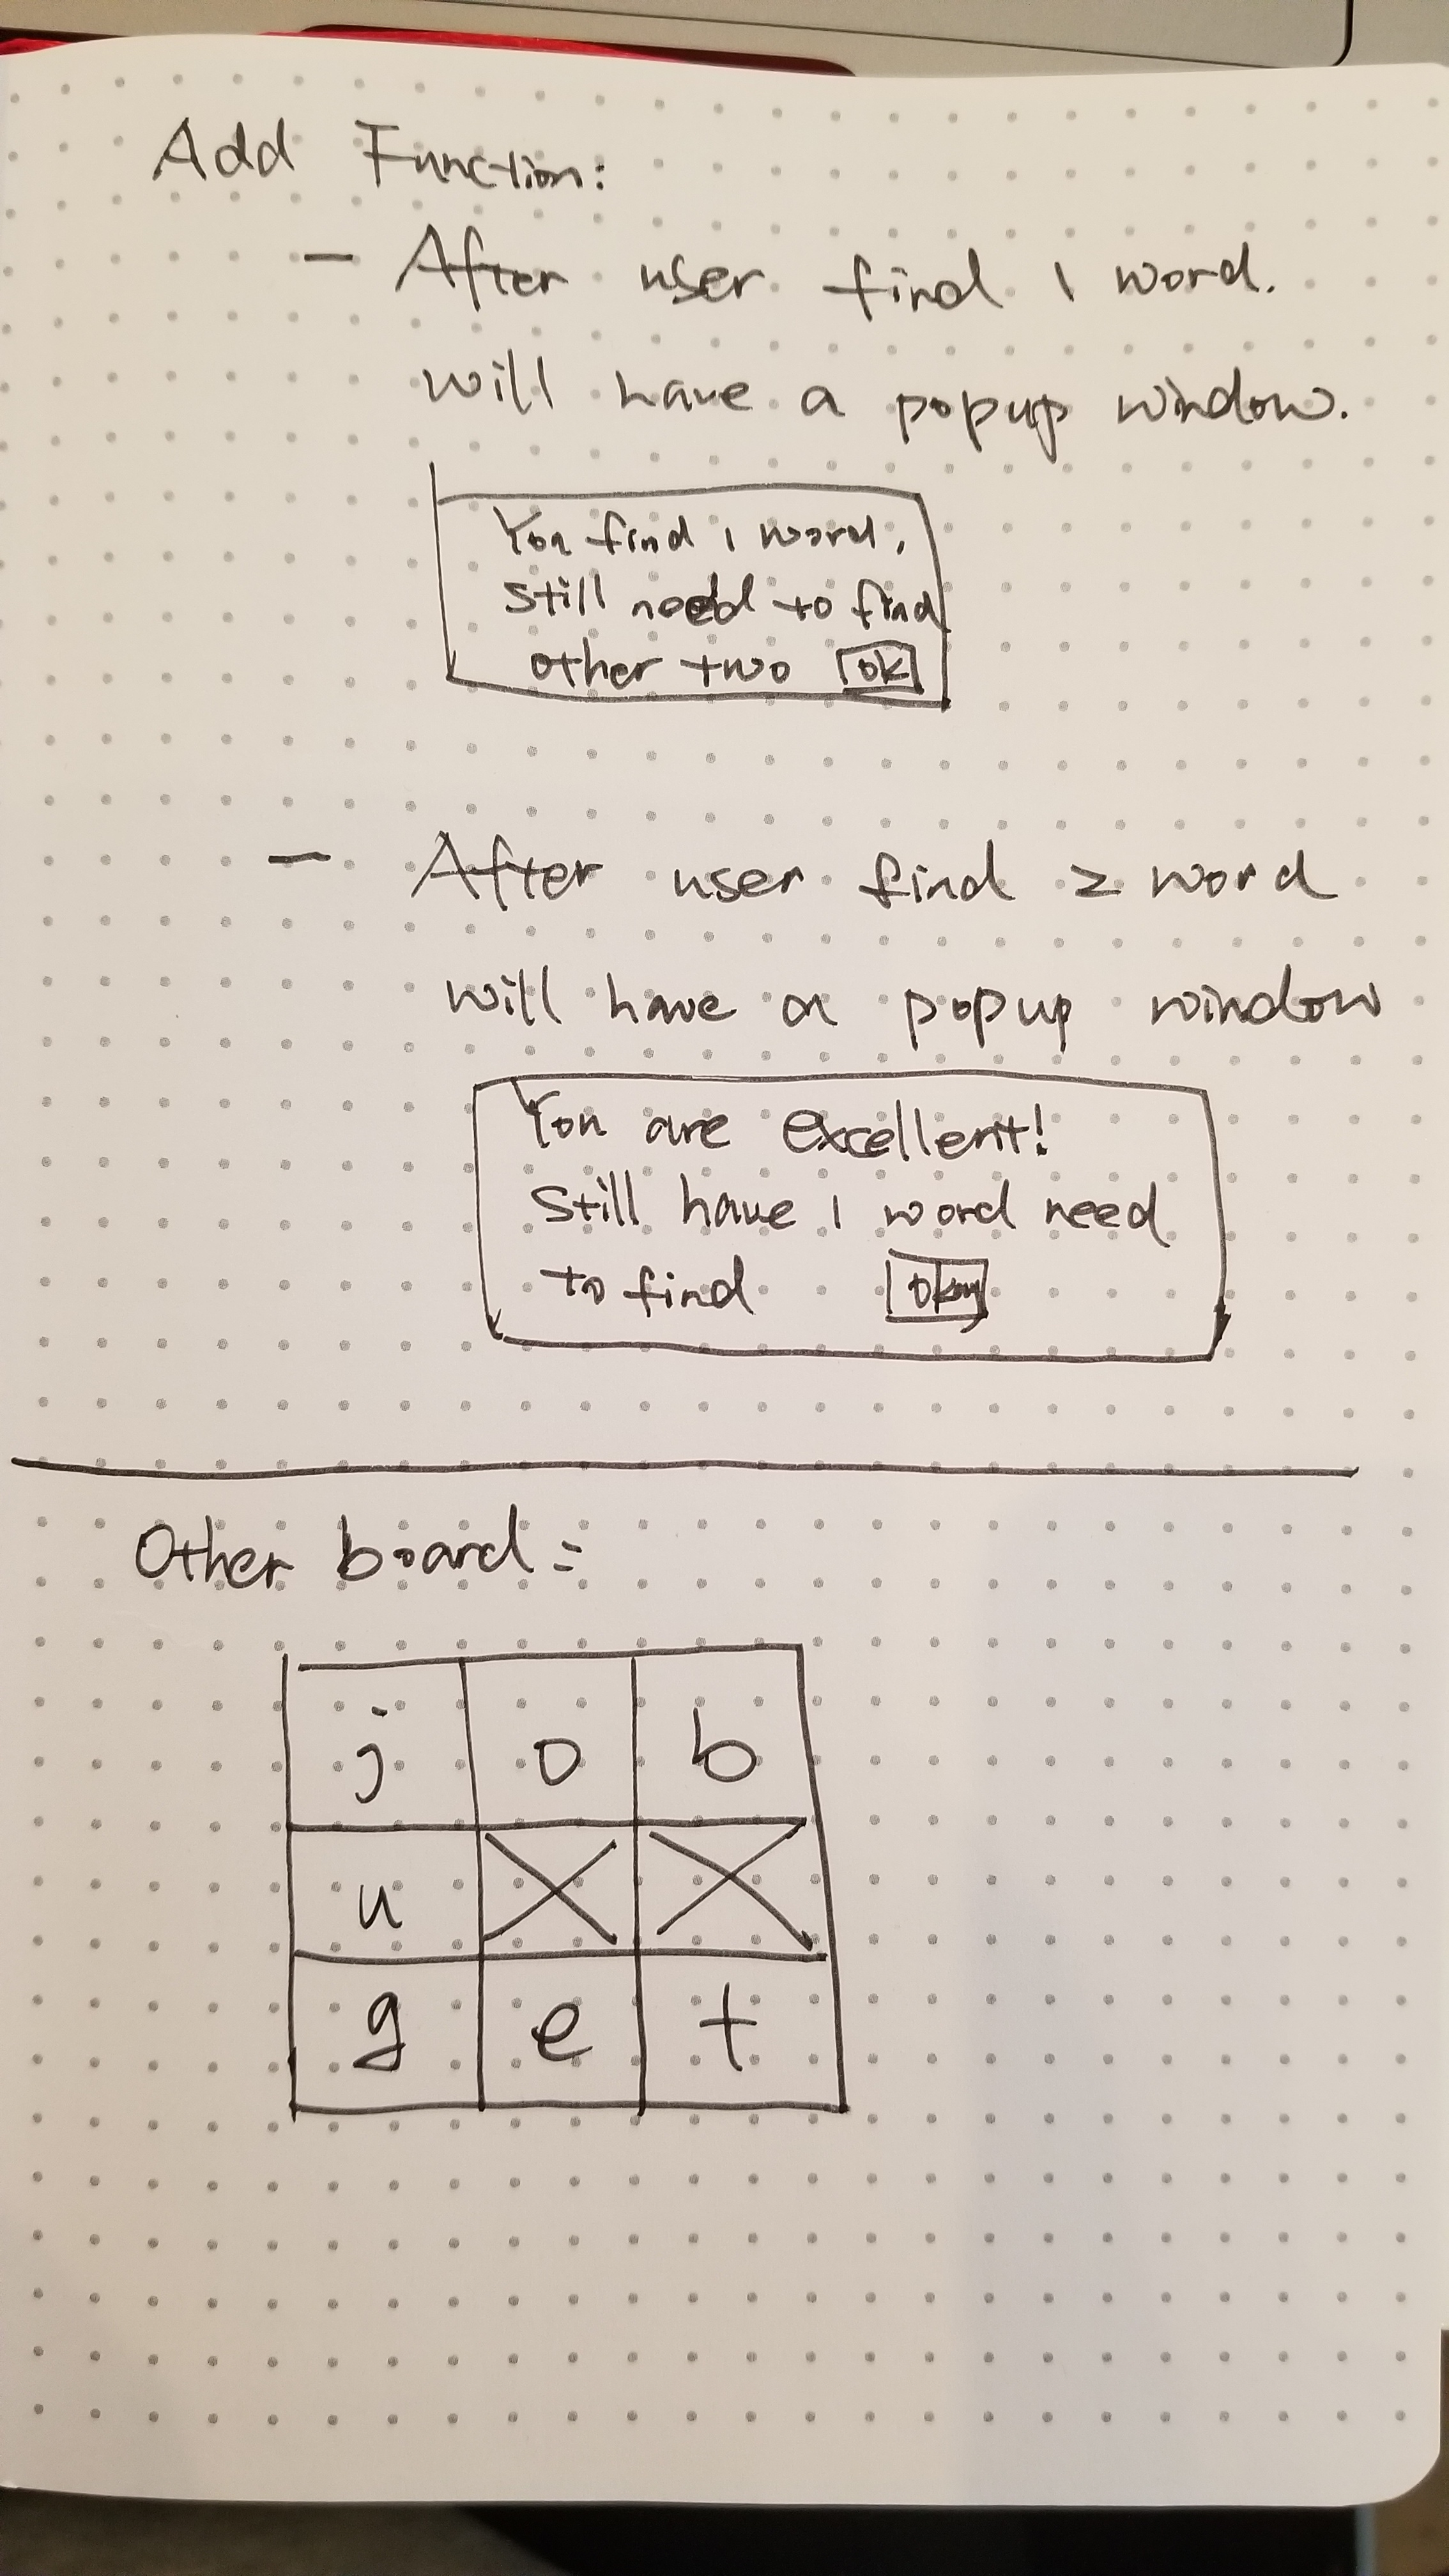 Add Function:
- After user find 1 word.
will have a popup window.
You find 1 word,
still need to find
other two ok
- After user find 2 word
will have a popup window
You are excellent!
Still have 1 word need
to find okay
Other board:
j o b
u
g e t